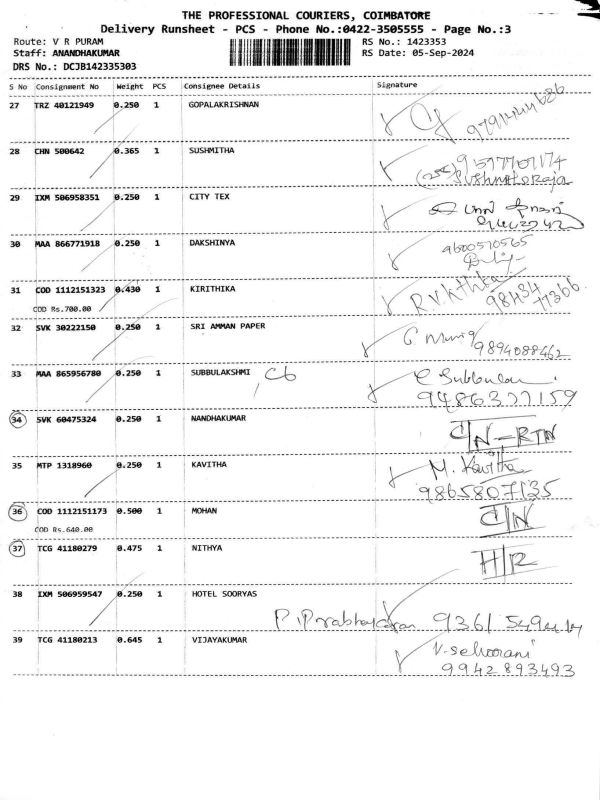 THE PROFESSIONAL COURIERS, COIMBATORE
Delivery Runsheet - PCS - Phone No.:0422-3505555 - Page No.:3
Route: V R PURAM RS No.: 1423353
Staff: ANANDHAKUMAR RS Date: 05-Sep-2024
DRS No.: DCJB142335303
S No Consignment No Weight PCS Consignee Details Signature
27 TRZ 40121949 0.250 1 GOPALAKRISHNAN
28 CHN 500642 0.365 1 SUSHMITHA
29 IXM 506958351 0.250 1 CITY TEX
30 MAA 866771918 0.250 1 DAKSHINYA
9600570565
31 COD 1112151323 0.430 1 KIRITHIKA
COD Rs.700.00
R.V.Kthika
98434
77366
32 SVK 30222150 0.250 1 SRI AMMAN PAPER
9894088462
33 MAA 865956780 0.250 1 SUBBULAKSHMI
9486377159
34 SVK 60475324 0.250 1 NANDHAKUMAR
C/N - RTN
35 MTP 1318960 0.250 1 KAVITHA
M. Kavitha
9865807135
36 COD 1112151173 0.500 1 MOHAN
COD Rs.640.00
C/N
37 TCG 41180279 0.475 1 NITHYA
H/R
38 IXM 506959547 0.250 1 HOTEL SOORYAS
P. Prabhakaran
39 TCG 41180213 0.645 1 VIJAYAKUMAR
9942893493